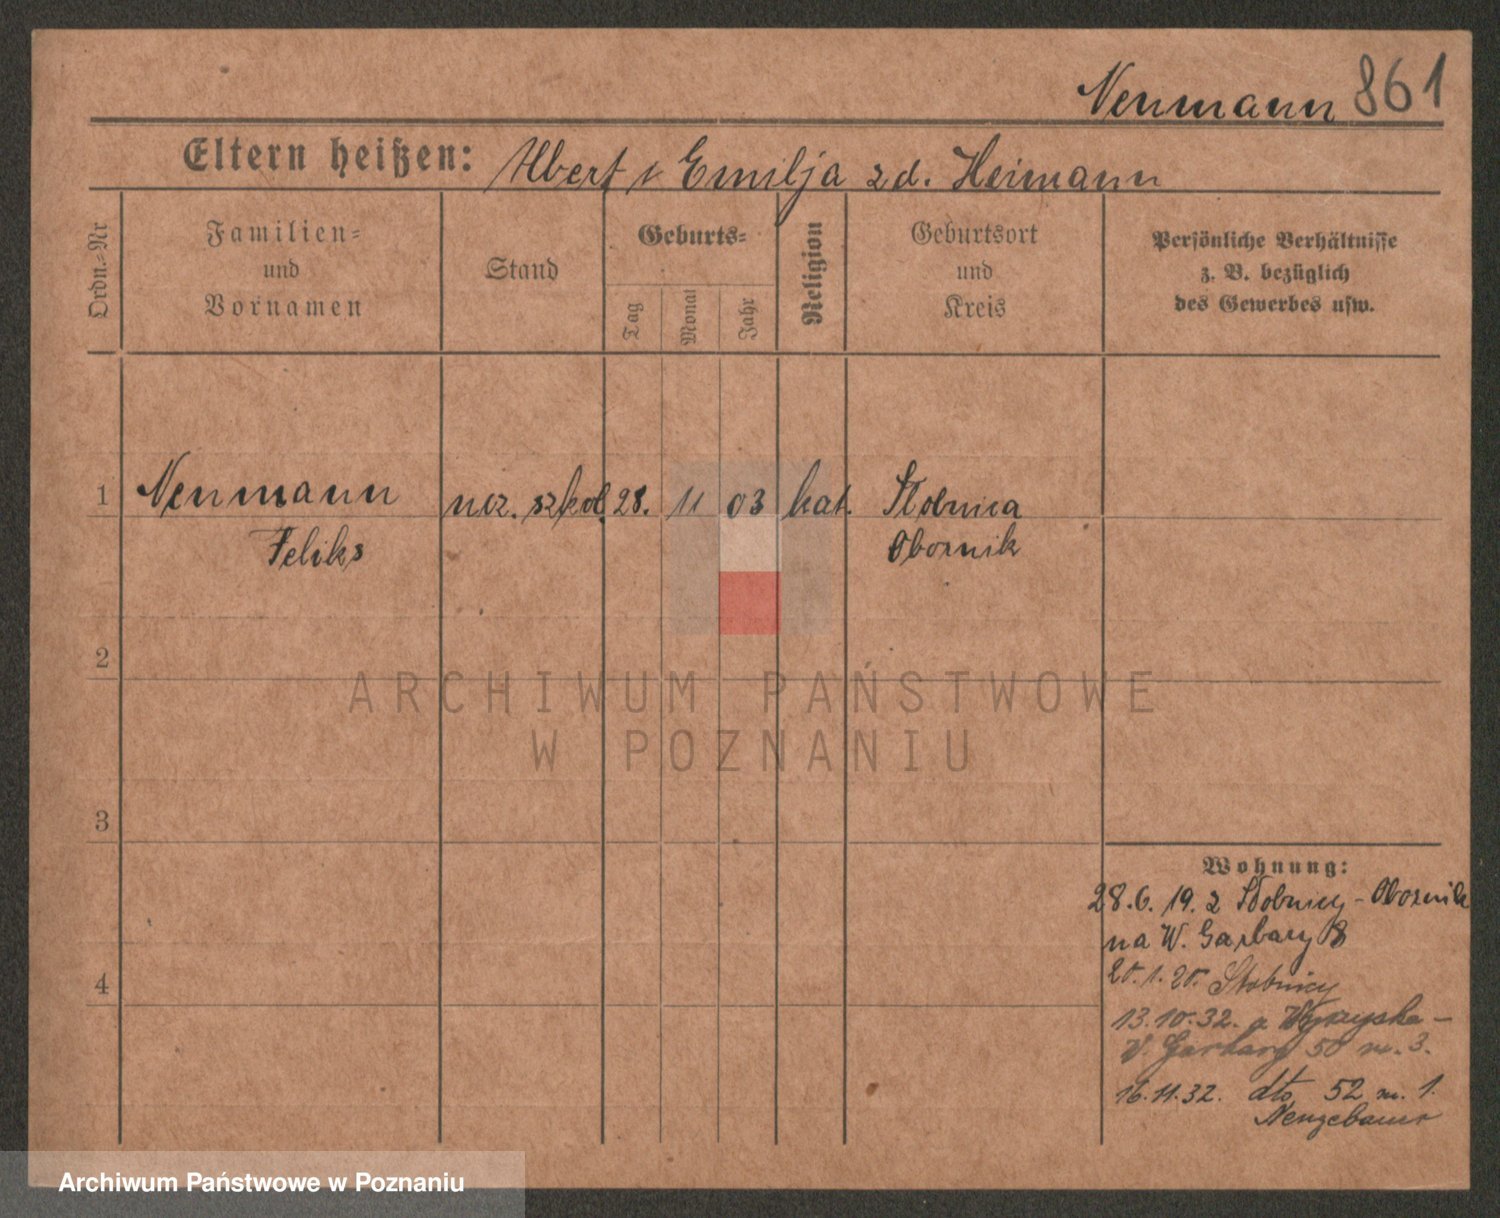 Neumann 861
Eltern heißen: Albert i Emilja z d. Heimann
Ordn.-Nr
Familien-
und
Vornamen
Stand
Geburts-
Tag
Monat
Jahr
Religion
Geburtsort
und
Kreis
Persönliche Verhältnisse
z. B. bezüglich
des Gewerbes usw.
1 Neumann ucz. szkol. 28. 11 03 kat. Słobnica
Feliks Obornik
2
ARCHIWUM PAŃSTWOWE
W POZNANIU
3
4
Wohnung:
28.6.19. z Słobnicy - Obornik
na W. Garbary 8
20.1.20. Słobnicy
13.10.32. z Wyrzyska -
W. Garbary 50 m. 3.
16.11.32. dto 52 m. 1.
Neugebauer
Archiwum Państwowe w Poznaniu